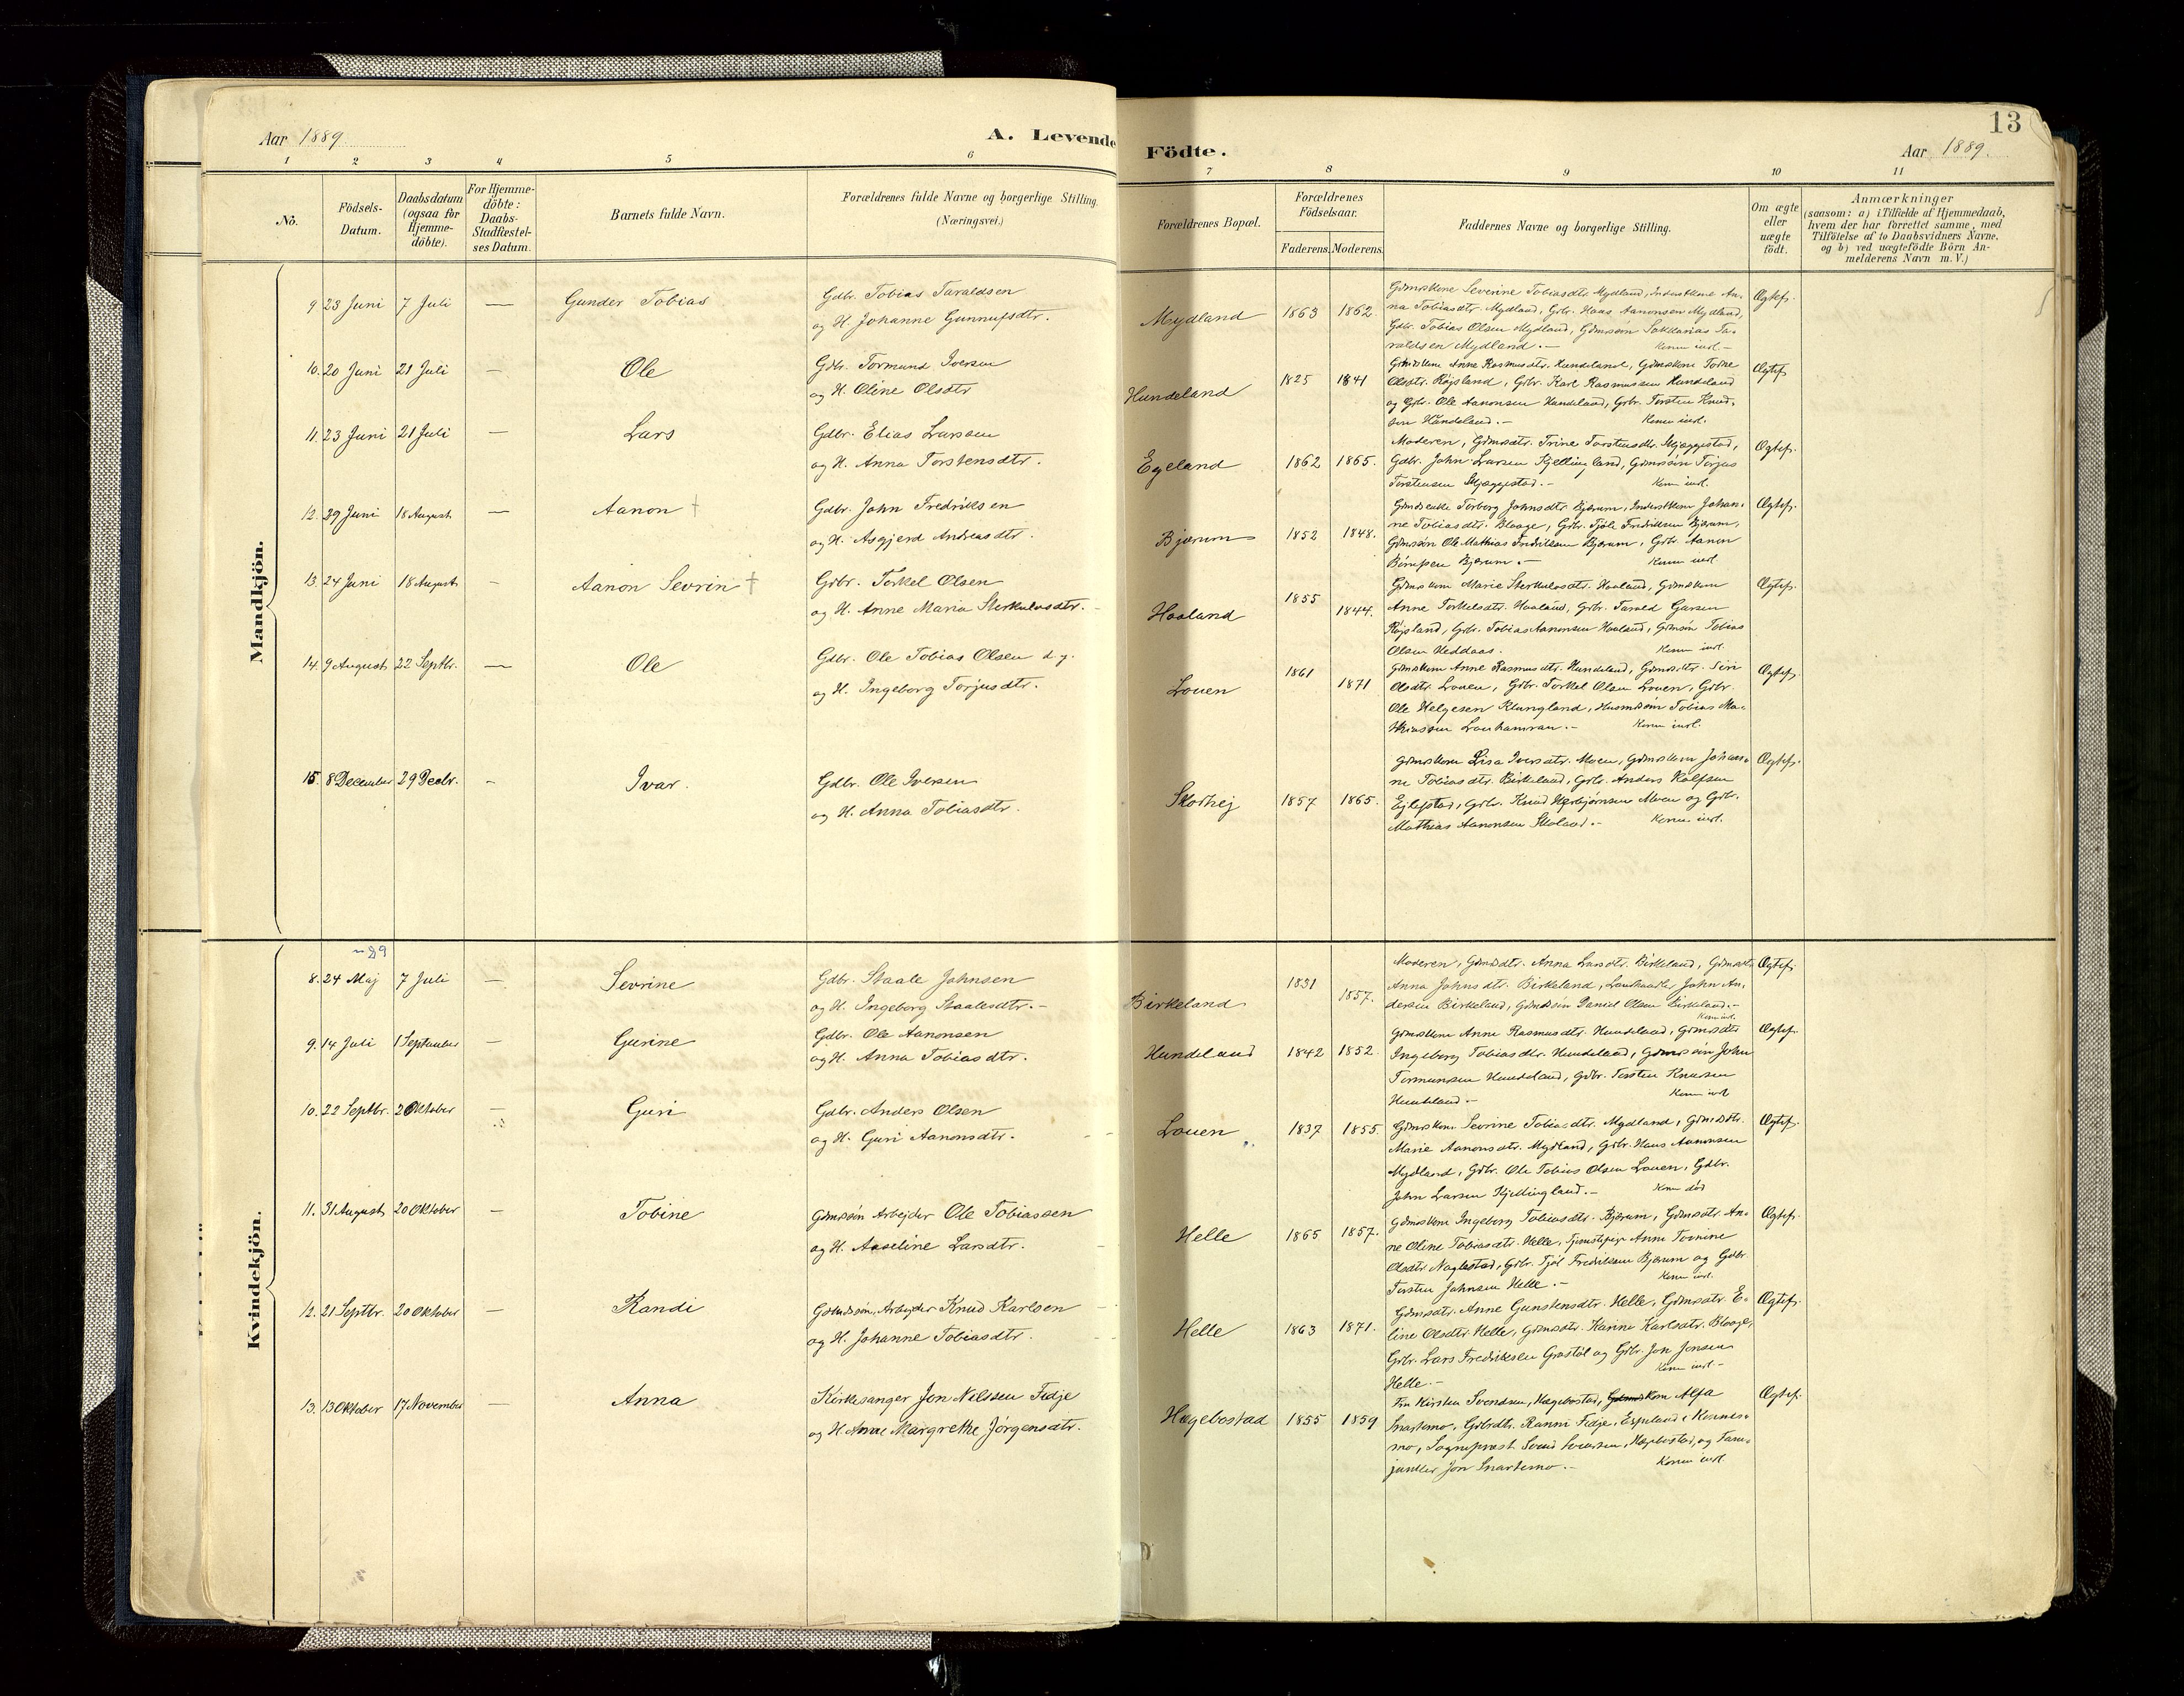 13
Aar 1889
A. Levende Födte.
Aar 1889.
1 2 3 4 5 6 7 8 9 10 11
No.
Födsels-Datum.
Daabsdatum (ogsaa for Hjemme-döbte).
For Hjemme-döbte: Daabs-Stadfæstel-ses Datum.
Barnets fulde Navn.
Forældrenes fulde Navne og borgerlige Stilling.
(Næringsvei.)
Forældrenes Bopæl.
Forældrenes Födselsaar.
Faderens. Moderens.
Faddernes Navne og borgerlige Stilling.
Om ægte eller uægte födt.
Anmærkninger
(saasom: a) i Tilfælde af Hjemmedaab,
hvem der har forrettet samme, med
Tilföielse af to Daabsvidners Navne,
og b) ved uægtefödte Börn An-
melderens Navn m. V.)
Mandkjön.
9 23 Juni 7 Juli — Gunder Tobias
Gdbr. Tobias Taraldsen
og H. Johanne Gunnufsdtr.
Mydland 1863 1862
Gdmdskone Severine Tobiasdtr. Mydland, Inderstkone An-
na Tobiasdtr. Mydland, Gdbr. Hans Aanonsen Mydland,
Gdbr. Tobias Olsen Mydland, Gdmdssøn Sakkarias Ta-
raldsen Mydland.—
Ægtef.
10. 20 Juni 21 Juli — Ole
Gdbr. Tormund Iversen
og H. Oline Olsdtr
Hundeland 1825 1841
Gdmdskone Anne Rasmusdtr. Hundeland, Gdmdskone Torine
Olsdtr. Røjsland, Gdbr. Karl Rasmussen Hundeland
og Gdbr. Ole Aanonsen Hundeland, Gdbr. Torsten Knud-
sen Hundeland.—
Ægtef.
11. 23 Juni 21 Juli — Lars
Gdbr. Elias Larssen
og H. Anna Torstensdtr.
Egeland 1862 1865.
Moderen, Gdmdsdtr. Trine Torstensdtr. Skjeggestad,
Gdbr. John Larsen Kjellingland, Gdmdssøn Torjus
Torstensen Skjeggestad.—
Ægtef.
12. 29 Juni 18 August — Aanon †
Gdbr. John Fredriksen
og H. Asgjerd Andreasdtr.
Bjærum 1852 1848.
Gmdsenke Torborg Johnsdtr. Bjærum, Inderstkone Johan-
ne Tobiasdtr. Blaage, Gdbr. Tjøl Fredriksen Bjærum,
Gdmdssøn Ole Mathias Fredriksen Bjærum, Gdbr Aanon
Bjærum.—
Ægtef.
13. 24 Juni 18 August — Aanon Sevrin †
Gdbr. Torkel Olsen
og H. Anne Maria Sterkulvsdtr.
Haaland 1855 1844.
Gdmdskone Marie Sterkulvsdtr. Haaland, Gdmdskone
Anne Torkelsdtr. Haaland, Gdbr. Tarald
Røjsland, Gdbr. Tobias Aanonsen Haaland, Gdmdssøn Tobias
Olsen Heddaas.
Ægtef.
14. 9 August 22 Septbr. — Ole
Gdbr. Ole Tobias Olsen d. y.
og H. Ingeborg Torjusdtr.
Louen 1861 1871
Gdmdskone Anne Rasmusdtr. Hundeland, Gdmdsdtr. Siri
Olsdtr. Louen, Gdbr. Torkel Olsen Louen, Gdbr.
Ole Helgesen Klungland, Husmdssøn Tobias Ma-
thiassen Louhamran.—
Ægtef.
15. 8 December 29 Decbr. — Ivar.
Gdbr. Ole Iversen
og H. Anna Tobiasdtr.
Skothej 1857 1865.
Gdmdskone Lisa Iversdtr. Moen, Gdmdskone Johan-
ne Tobiasdtr. Birkeland, Gdbr. Anders Rolfsen
Ejlefstad, Gdbr. Knud Herbjørnsen Moen og Gdbr.
Mathias Aanonsen Skoland.—
Ægtef.
Kvindekjön.
8. 24 Maj 7 Juli — Sevrine
Gdbr. Staale Johnsen
og H. Ingeborg Staalesdtr.—
Birkeland 1831 1857.
Moderen, Gdmdsdtr. Anna Larsdtr. Birkeland, Gdmdsdtr
Anna Johnsdtr. Birkeland, Landhandler John An-
dersen Birkeland, Gdmdssøn Daniel Olsen Birkeland.—
Ægtef.
9. 14 Juli 1 September — Gurine
Gdbr. Ole Aanonsen
og H. Anna Tobiasdtr.
Hundeland 1842 1852.
Gdmdskone Anne Rasmusdtr. Hundeland, Gdmdsdtr
Ingeborg Tobiasdtr. Hundeland, Gdmdssøn John
Tormunsen Hundeland, Gdbr. Torsten Knudsen
Hundeland.—
Ægtef.
10. 22 Septbr. 20 Oktober — Guri
Gdbr. Anders Olsen
og H. Guri Aanonsdtr.
Louen 1837 1855.
Gdmdskone Sevrine Tobiasdtr. Mydland, Gdmdsdtr.
Marie Aanonsdtr. Mydland, Gdbr. Hans Aanonsen
Mydland, Gdbr. Ole Tobias Olsen Louen, Gdbr.
John Larsen Kjellingland.—
Ægtef.
11. 31 August 20 Oktober — Tobine
Gdmdssøn Arbejder Ole Tobiassen
og H. Aaseline Larsdtr.
Helle 1865 1857.
Gdmdskone Ingeborg Tobiasdtr. Bjærum, Gdmdsdtr. An-
ne Oline Tobiasdtr. Helle, Tjenestepige Anne Tomine
Olsdtr Naglestad, Gdbr. Tjøl Fredriksen Bjærum og Gdbr.
Torsten Johnsen Helle.—
Ægtef.
12. 21 Septbr. 20 Oktober — Randi
Gdmdssøn, Arbejder Knud Karlsen
og H. Johanne Tobiasdtr.
Helle 1863 1871.
Gdmdsdtr. Anne Gunstensdtr. Helle, Gdmdsdtr. E-
line Olsdtr. Helle, Gdmdsdtr. Karine Karlsdtr. Blaage,
Gdbr. Lars Fredriksen Grastøl og Gdbr. Jon Jonsen
Helle.—
Ægtef.
13. 13 Oktober 17 November — Anna
Kirkesanger Jon Nilssen Fidje
og H. Anne Margrethe Jørgensdtr.
Hægebostad 1855 1859
Fru Kirsten Svendsen, Hægebostad, Kone Alfa
Snartemo, Gdbrdtr. Ranni Fidje, Espeland i Konnes-
mo, Sogneprest Svend Svendsen, Hægebostad, og Fann-
junker Jon Snartemo.—
Ægtef.